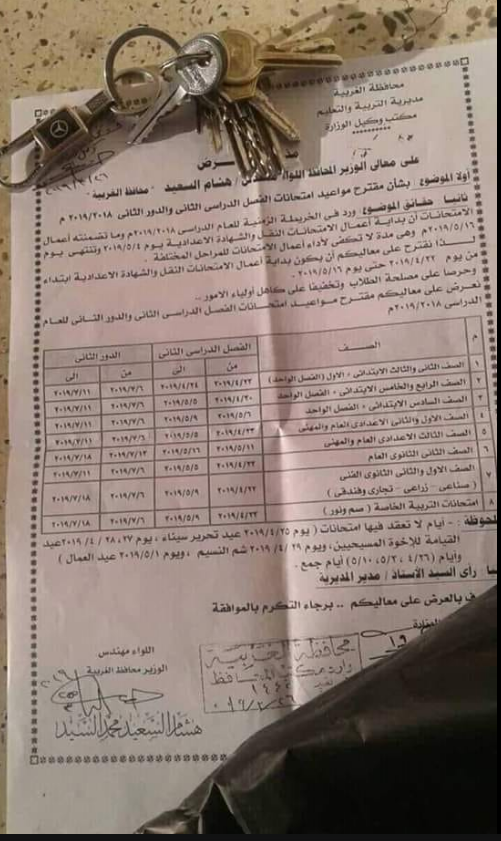 محافظة الغربية
مديرية التربية والتعليم
مكتب وكيل الوزارة
رض
على معالى الوزير المحافظ اللواء مهندس / هشام السعيد " محافظ الغربية "
أولا الموضوع : بشأن مقترح مواعيد امتحانات الفصل الدراسى الثانى والدور الثانى ٢٠١٩/٢٠١٨ م
ثانيا حقائق الموضوع : ورد فى الخريطة الزمنية للعام الدراسى ٢٠١٩/٢٠١٨م وما تضمنته أعمال
الامتحانات أن بداية أعمال الامتحانات النقل والشهادة الاعدادية يوم ٢٠١٩/٥/٤ وتنتهى يوم
٢٠١٩/٥/١٦م وهى مدة لا تكفى لأداء أعمال الامتحانات للمراحل المختلفة .
لذا نقترح على معاليكم أن يكون بداية أعمال الامتحانات النقل والشهادة الاعدادية ابتداء
من يوم ٢٠١٩/٤/٢٢ حتى يوم ٢٠١٩/٥/١٦ .
وحرصا على مصلحة الطلاب وتخفيفا على كاهل أولياء الامور ..
نعرض على معاليكم مقترح مواعيد امتحانات الفصل الدراسى الثانى والدور الثانى للعام
الدراسى ٢٠١٩/٢٠١٨م
م الصف الفصل الدراسى الثانى الدور الثانى
من الى من الى
١ الصف الثانى والثالث الابتدائى + الاول (الفصل الواحد) ٢٠١٩/٤/٢٢ ٢٠١٩/٤/٢٤ ٢٠١٩/٧/٦ ٢٠١٩/٧/١١
٢ الصف الرابع والخامس الابتدائى + الفصل الواحد ٢٠١٩/٤/٣٠ ٢٠١٩/٥/٥ ٢٠١٩/٧/٦ ٢٠١٩/٧/١١
٣ الصف السادس الابتدائى + الفصل الواحد ٢٠١٩/٥/٦ ٢٠١٩/٥/٩ ٢٠١٩/٧/٦ ٢٠١٩/٧/١١
٤ الصف الاول والثانى الاعدادى العام والمهنى ٢٠١٩/٤/٢٣ ٢٠١٩/٥/٥ ٢٠١٩/٧/٦ ٢٠١٩/٧/١١
٥ الصف الثالث الاعدادى العام والمهنى ٢٠١٩/٥/١١ ٢٠١٩/٥/١٦ ٢٠١٩/٧/١٣ ٢٠١٩/٧/١٨
٦ الصف الثانى الثانوى العام ٢٠١٩/٤/٢٢ ٢٠١٩/٥/٥ ٢٠١٩/٧/٦ ٢٠١٩/٧/١١
٧ الصف الاول والثانى الثانوى الفنى
( صناعى - زراعى - تجارى وفندقى ) ٢٠١٩/٤/٢٢ ٢٠١٩/٥/٩ ٢٠١٩/٧/٦ ٢٠١٩/٧/١٨
امتحانات التربية الخاصة ( سم ونور ) ٢٠١٩/٤/٢٢ ٢٠١٩/٥/٩ ٢٠١٩/٧/٦ ٢٠١٩/٧/١٨
لحوظة : - أيام لا تعقد فيها امتحانات ( يوم ٢٠١٩/٤/٢٥ عيد تحرير سيناء ، يوم ٢٧ ، ٢٨ / ٢٠١٩/٤ عيد
القيامة للأخوة المسيحيين، ويوم ٢٠١٩/٤/٢٩ شم النسيم ، ويوم ٢٠١٩/٥/١ عيد العمال )
وأيام ( ٤/٢٦ ، ٥/٣ ، ٥/١٠ ) أيام جمع .
رأى السيد الاستاذ / مدير المديرية
ف بالعرض على معاليكم .. برجاء التكرم بالموافقة
اللواء مهندس
الوزير محافظ الغربية
هشام السعيد محمد السيد
محافظة الغربية
وارد مكتب المحافظ